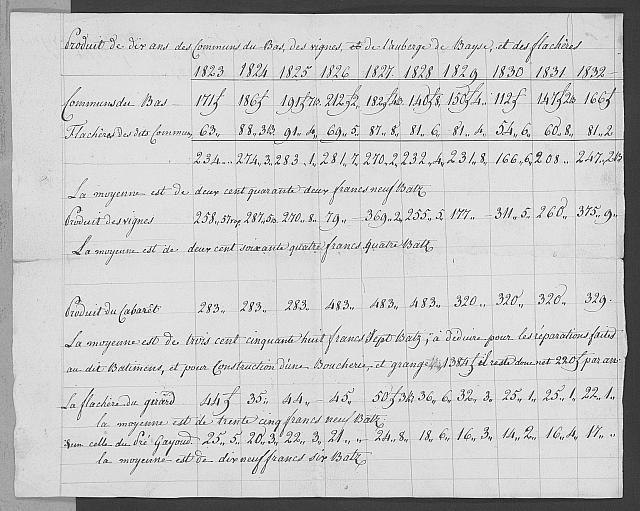 Produit de dix ans des Communs du Bas, des vignes, et de l'auberge de Bayse, et des flachères
1823 1824 1825 1826 1827 1828 1829 1830 1831 1832
Communs du Bas 171f 186f 191f 7B. 212f 2 182f 4B 140f 8. 150f 4. 112f 147f 2B 166f
Flachères des dits Commun, 63 88.. 3B 91.. 4.. 69.. 5. 87.. 8. 81.. 6. 81.. 4.. 54.. 6. 60.. 8. 81.. 2
234.. 274.. 3. 283.. 1.. 281.. 7. 270.. 2. 232.. 4. 231.. 8. 166.. 6. 208.. 247.. 2B
La moyenne est de deux cent quarante deux francs neuf Batz
Produit des vignes 258.. 287.. 5B. 270.. 8.. 79.. 369.. 2. 255.. 5. 177.. 311.. 5. 260.. 375.. 9..
La moyenne est de deux cent soixante quatre francs quatre Batz
Produit du Cabarêt 283.. 283.. 283.. 483.. 483.. 483.. 320.. 320.. 320.. 329.
La moyenne est de trois cent cinquante huit francs Sept Batz, à déduire pour les réparations faites
au dit Batimens, et pour Construction d'une Boucherie, et grange 1384f il reste donc net 220f par an.
La flachère du girard 44f 35.. 44.. 45.. 50f 3B 36.. 6. 32.. 3.. 25.. 1. 25.. 1. 22.. 1..
la moyenne est de trente cinq francs neuf Batz
celle du Pré Gayoud 25.. 5. 20.. 3.. 22.. 3. 21.. .. 24.. 8.. 18.. 6. 16.. 3. 14.. 2.. 16.. 4. 17.. ..
la moyenne est de dix neuf francs six Batz